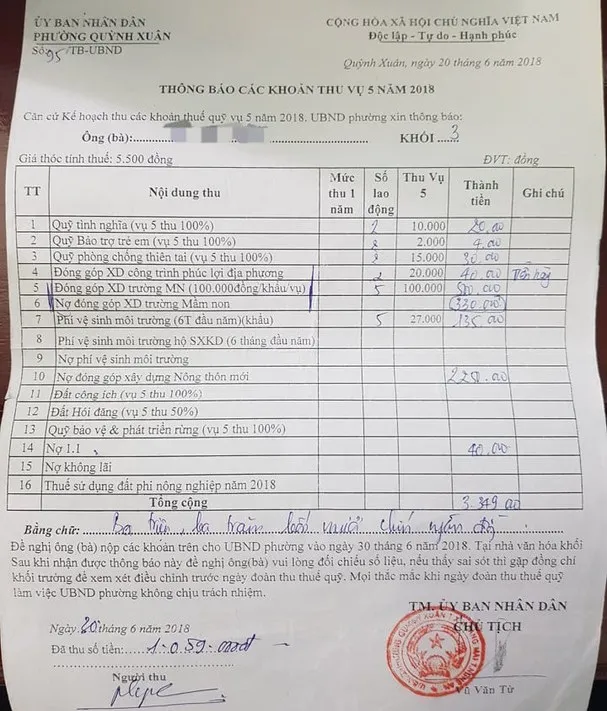 ỦY BAN NHÂN DÂN
PHƯỜNG QUỲNH XUÂN
Số: 95/TB-UBND
CỘNG HÒA XÃ HỘI CHỦ NGHĨA VIỆT NAM
Độc lập - Tự do - Hạnh phúc
Quỳnh Xuân, ngày 20 tháng 6 năm 2018
THÔNG BÁO CÁC KHOẢN THU VỤ 5 NĂM 2018
Căn cứ Kế hoạch thu các khoản thuế quỹ vụ 5 năm 2018. UBND phường xin thông báo:
Ông (bà): KHỐI 3
Giá thóc tính thuế: 5.500 đồng ĐVT: đồng
TT Nội dung thu Mức thu 1 năm Số lao động Thu Vụ 5 Thành tiền Ghi chú
1 Quỹ tình nghĩa (vụ 5 thu 100%) 2 10.000 20.00
2 Quỹ Bảo trợ trẻ em (vụ 5 thu 100%) 2 2.000 4.00
3 Quỹ phòng chống thiên tai (vụ 5 thu 100%) 2 15.000 30.00
4 Đóng góp XD công trình phúc lợi địa phương 2 20.000 40.00
5 Đóng góp XD trường MN (100.000đồng/khẩu/vụ) 5 100.000 500.00
6 Nợ đóng góp XD trường Mầm non (330.00)
7 Phí vệ sinh môi trường (6T đầu năm)(khẩu) 5 27.000 135.00
8 Phí vệ sinh môi trường hộ SXKD (6 tháng đầu năm)
9 Nợ phí vệ sinh môi trường
10 Nợ đóng góp xây dựng Nông thôn mới
11 Đất công ích (vụ 5 thu 100%)
12 Đất Hói đăng (vụ 5 thu 50%)
13 Quỹ bảo vệ & phát triển rừng (vụ 5 thu 100%)
14 Nợ 1.1 40.00
15 Nợ không lãi
16 Thuế sử dụng đất phi nông nghiệp năm 2018
Tổng cộng 3.349.00
Bằng chữ: Ba triệu, ba trăm bốn mươi chín ngàn đồng
Đề nghị ông (bà) nộp các khoản trên cho UBND phường vào ngày 30 tháng 6 năm 2018. Tại nhà văn hóa khối
Sau khi nhận được thông báo này đề nghị ông(bà) vui lòng đối chiếu số liệu, nếu thấy sai sót thì gặp đồng chí
khối trưởng để xem xét điều chỉnh trước ngày đoàn thu thuế quỹ. Mọi thắc mắc khi ngày đoàn thu thuế quỹ
làm việc UBND phường không chịu trách nhiệm.
TM. ỦY BAN NHÂN DÂN
CHỦ TỊCH
Ngày 30 tháng 6 năm 2018
Đã thu số tiền: 1.059
Người thu
Vũ Văn Từ